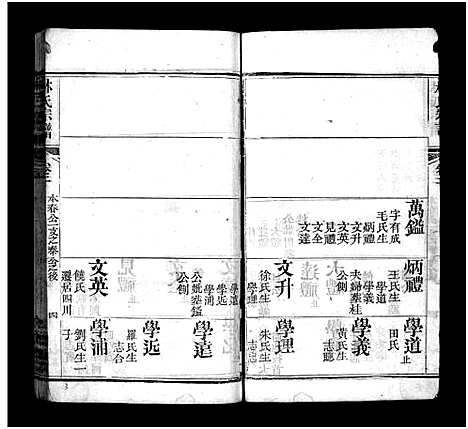 萬鑑
字有成
毛氏生
炳禮
文升
文英
見禮
文全
文達
炳禮
王氏生
學道
學義
夫婦塟桂
公側
文升
徐氏生
學理
學遠
學近
學浦
公妣塟鎰
公側
文英
饒氏生
學浦
還居四川
學道 止
田氏
學義
黃氏生
志聰
學理
朱氏生
志忠
學遠 止
學近
羅氏生
志合
學浦
劉氏生一
子
林氏宗譜
卷二
永春公一支之泰公之後
四